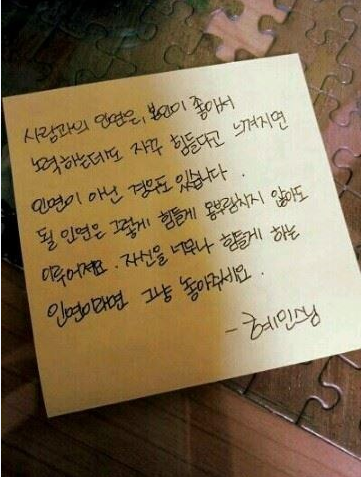 사람과의 인연은, 본인이 좋아서
노력하는데도 자꾸 힘들다고 느껴지면
인연이 아닌 경우도 있습니다.
될 인연은 그렇게 힘들게 몸부림치지 않아도
이루어져요. 자신을 너무나 힘들게 하는
인연이라면 그냥 놓아주세요.
- 혜민스님